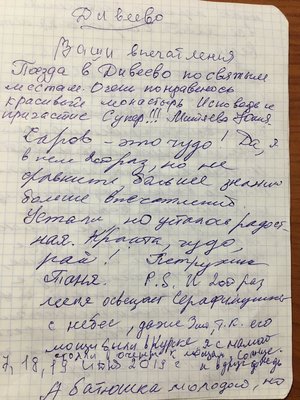 Дивеево
Ваши впечатления
Поезда в Дивеево по святым
местам. Очень понравилось
красивый монастырь Исповедь и
причастие Супер!!! Митяева Юлия.
Саров - это чудо! Да, я
в нем 2ой раз, но не
сравнить больше знаний
больше впечатлений.
Устали но усталость радост-
ная. Красота, чудо,
рай! Петрухина
Таня. P.S. И 2ой раз
меня освещает Серафимушка
с небес, даже 3ий, т.к. его
мощи были в Курске. я с мамой
стояли в очереди к мощам. Солнце.
17, 18, 19 2019 г и в другой
А батюшка молодой, но